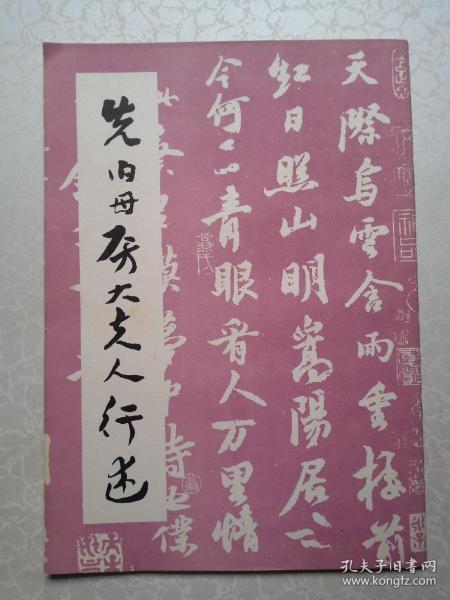 先伯母房太夫人行述
天際烏雲含雨重樓前
紅日照山明嵩陽居士
今何在青眼看人万里情
孔夫子旧书网
www.kongfz.com